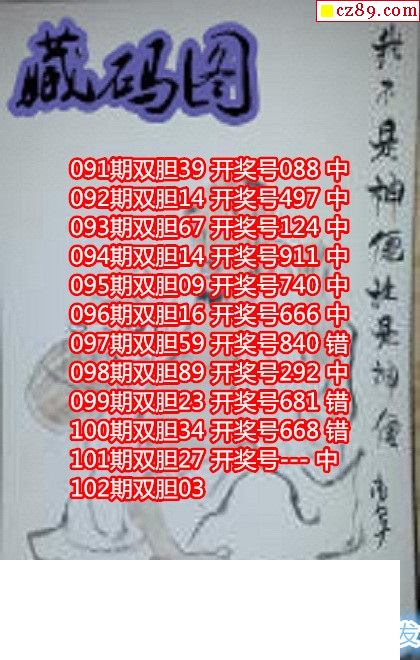 cz89.com
藏码图
091期双胆39 开奖号088 中
092期双胆14 开奖号497 中
093期双胆67 开奖号124 中
094期双胆14 开奖号911 中
095期双胆09 开奖号740 中
096期双胆16 开奖号666 中
097期双胆59 开奖号840 错
098期双胆89 开奖号292 中
099期双胆23 开奖号681 错
100期双胆34 开奖号668 错
101期双胆27 开奖号--- 中
102期双胆03
我不是神 是神
发